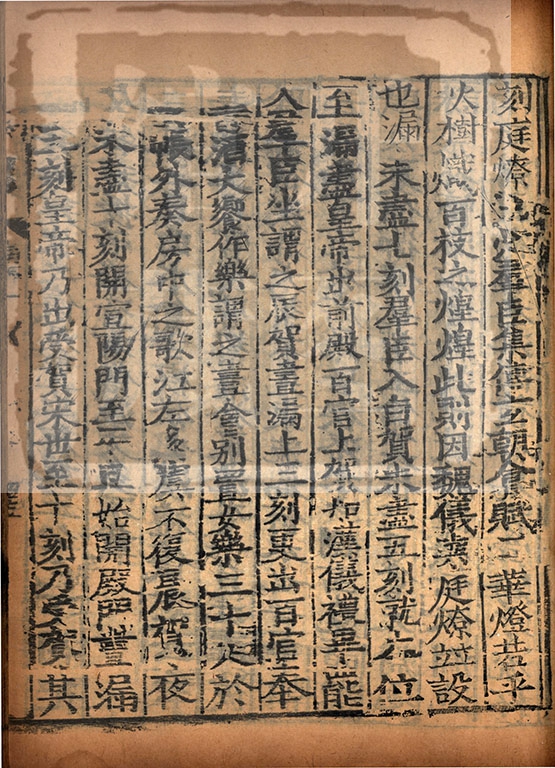 刻庭燎起火羣臣集傅玄朝會賦云華燈若乎
火樹熾百枝之煌煌此則因魏儀與庭燎並設
也漏未盡七刻羣臣入白賀未盡五刻就本位
至漏盡皇帝出前殿百官上賀如漢儀禮畢罷
入羣臣坐謂之辰賀晝漏上三刻更出百官奉
壽酒大饗作樂謂之晝會別置女樂三十人於
黃帳外奏房中之歌江左多虞不復晨賀夜
漏未盡十刻開宣陽門至平旦始開殿門晝漏
上五刻皇帝乃出受賀宋世至十刻乃受賀其